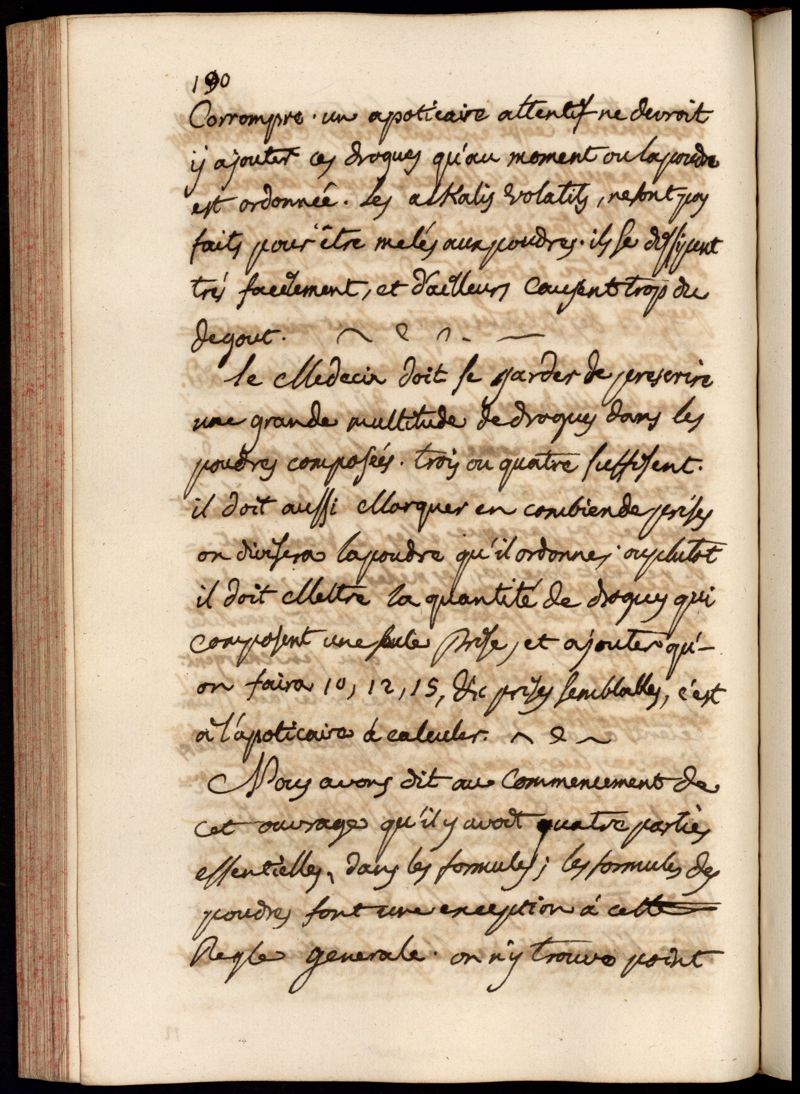 190
Corrompre. un apoticaire attentif ne devroit
y ajouter ces drogues qu'au moment ou la poudre
est ordonnée. Les alKalis volatils, ne sont pas
faits pour être melés aux poudres. ils se dissipent
trés facilement, et d'ailleurs causent trop du
degout.
Le Medecin doit se garder de prescrire
une grande multitude de drogues dans les
poudres composées. trois ou quatre suffisent.
il doit aussi Marquer en combien de prises
on divisera la poudre qu'il ordonne; ou plutot
il doit Mettre la quantité de drogues qui
composent une seule prise, et ajouter qu'-
on faira 10, 12, 15, dix prises semblables, c'est
a l'apoticaire á calculer.
Nous avons dit au Commencement de
cet ouvrage qu'il y avoit quatre parties
essentielles, dans les formules; les formules des
poudres font une exception á cette
Regle generale. on n'y trouve point